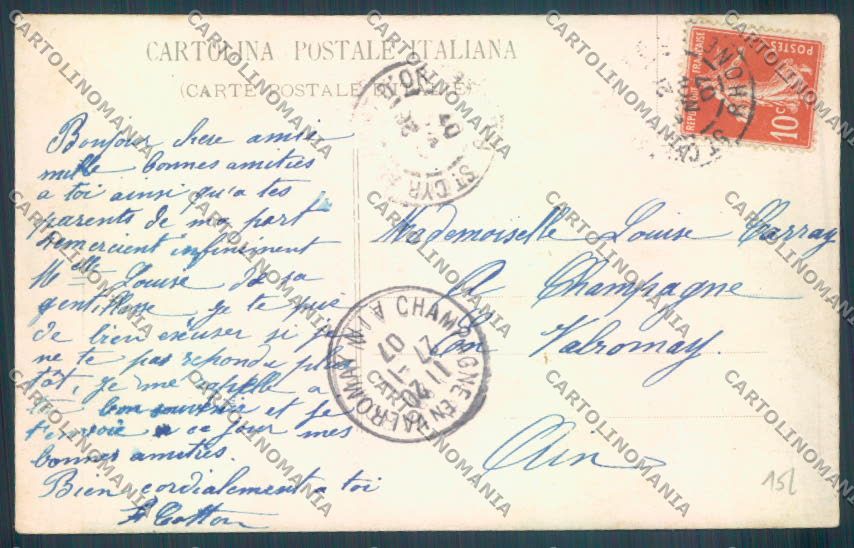 CARTOLINA POSTALE ITALIANA
(CARTE POSTALE D'ITALIE)
Bonjour chere amie
mille bonnes amitiés
a toi ainsi qu'a tes
parents de ma part
remercient infiniment
Melle Louise de sa
gentillesse je te prie
de bien excuser si je
ne te pas repondu plus
tôt, Je me rapelle a
ton bon souvenir et je
t'envoie a ce jour mes
bonnes amitiés.
Bien cordialement a toi
Cotton
Mademoiselle Louise Carray
A Champagne
en Valromay
Ain
REPUBLIQUE FRANÇAISE
POSTES
10c
RHONE
ST CYR
CHAMPAGNE-EN-VALROMAY
AIN
11
07
15L
CARTOLINOMANIA